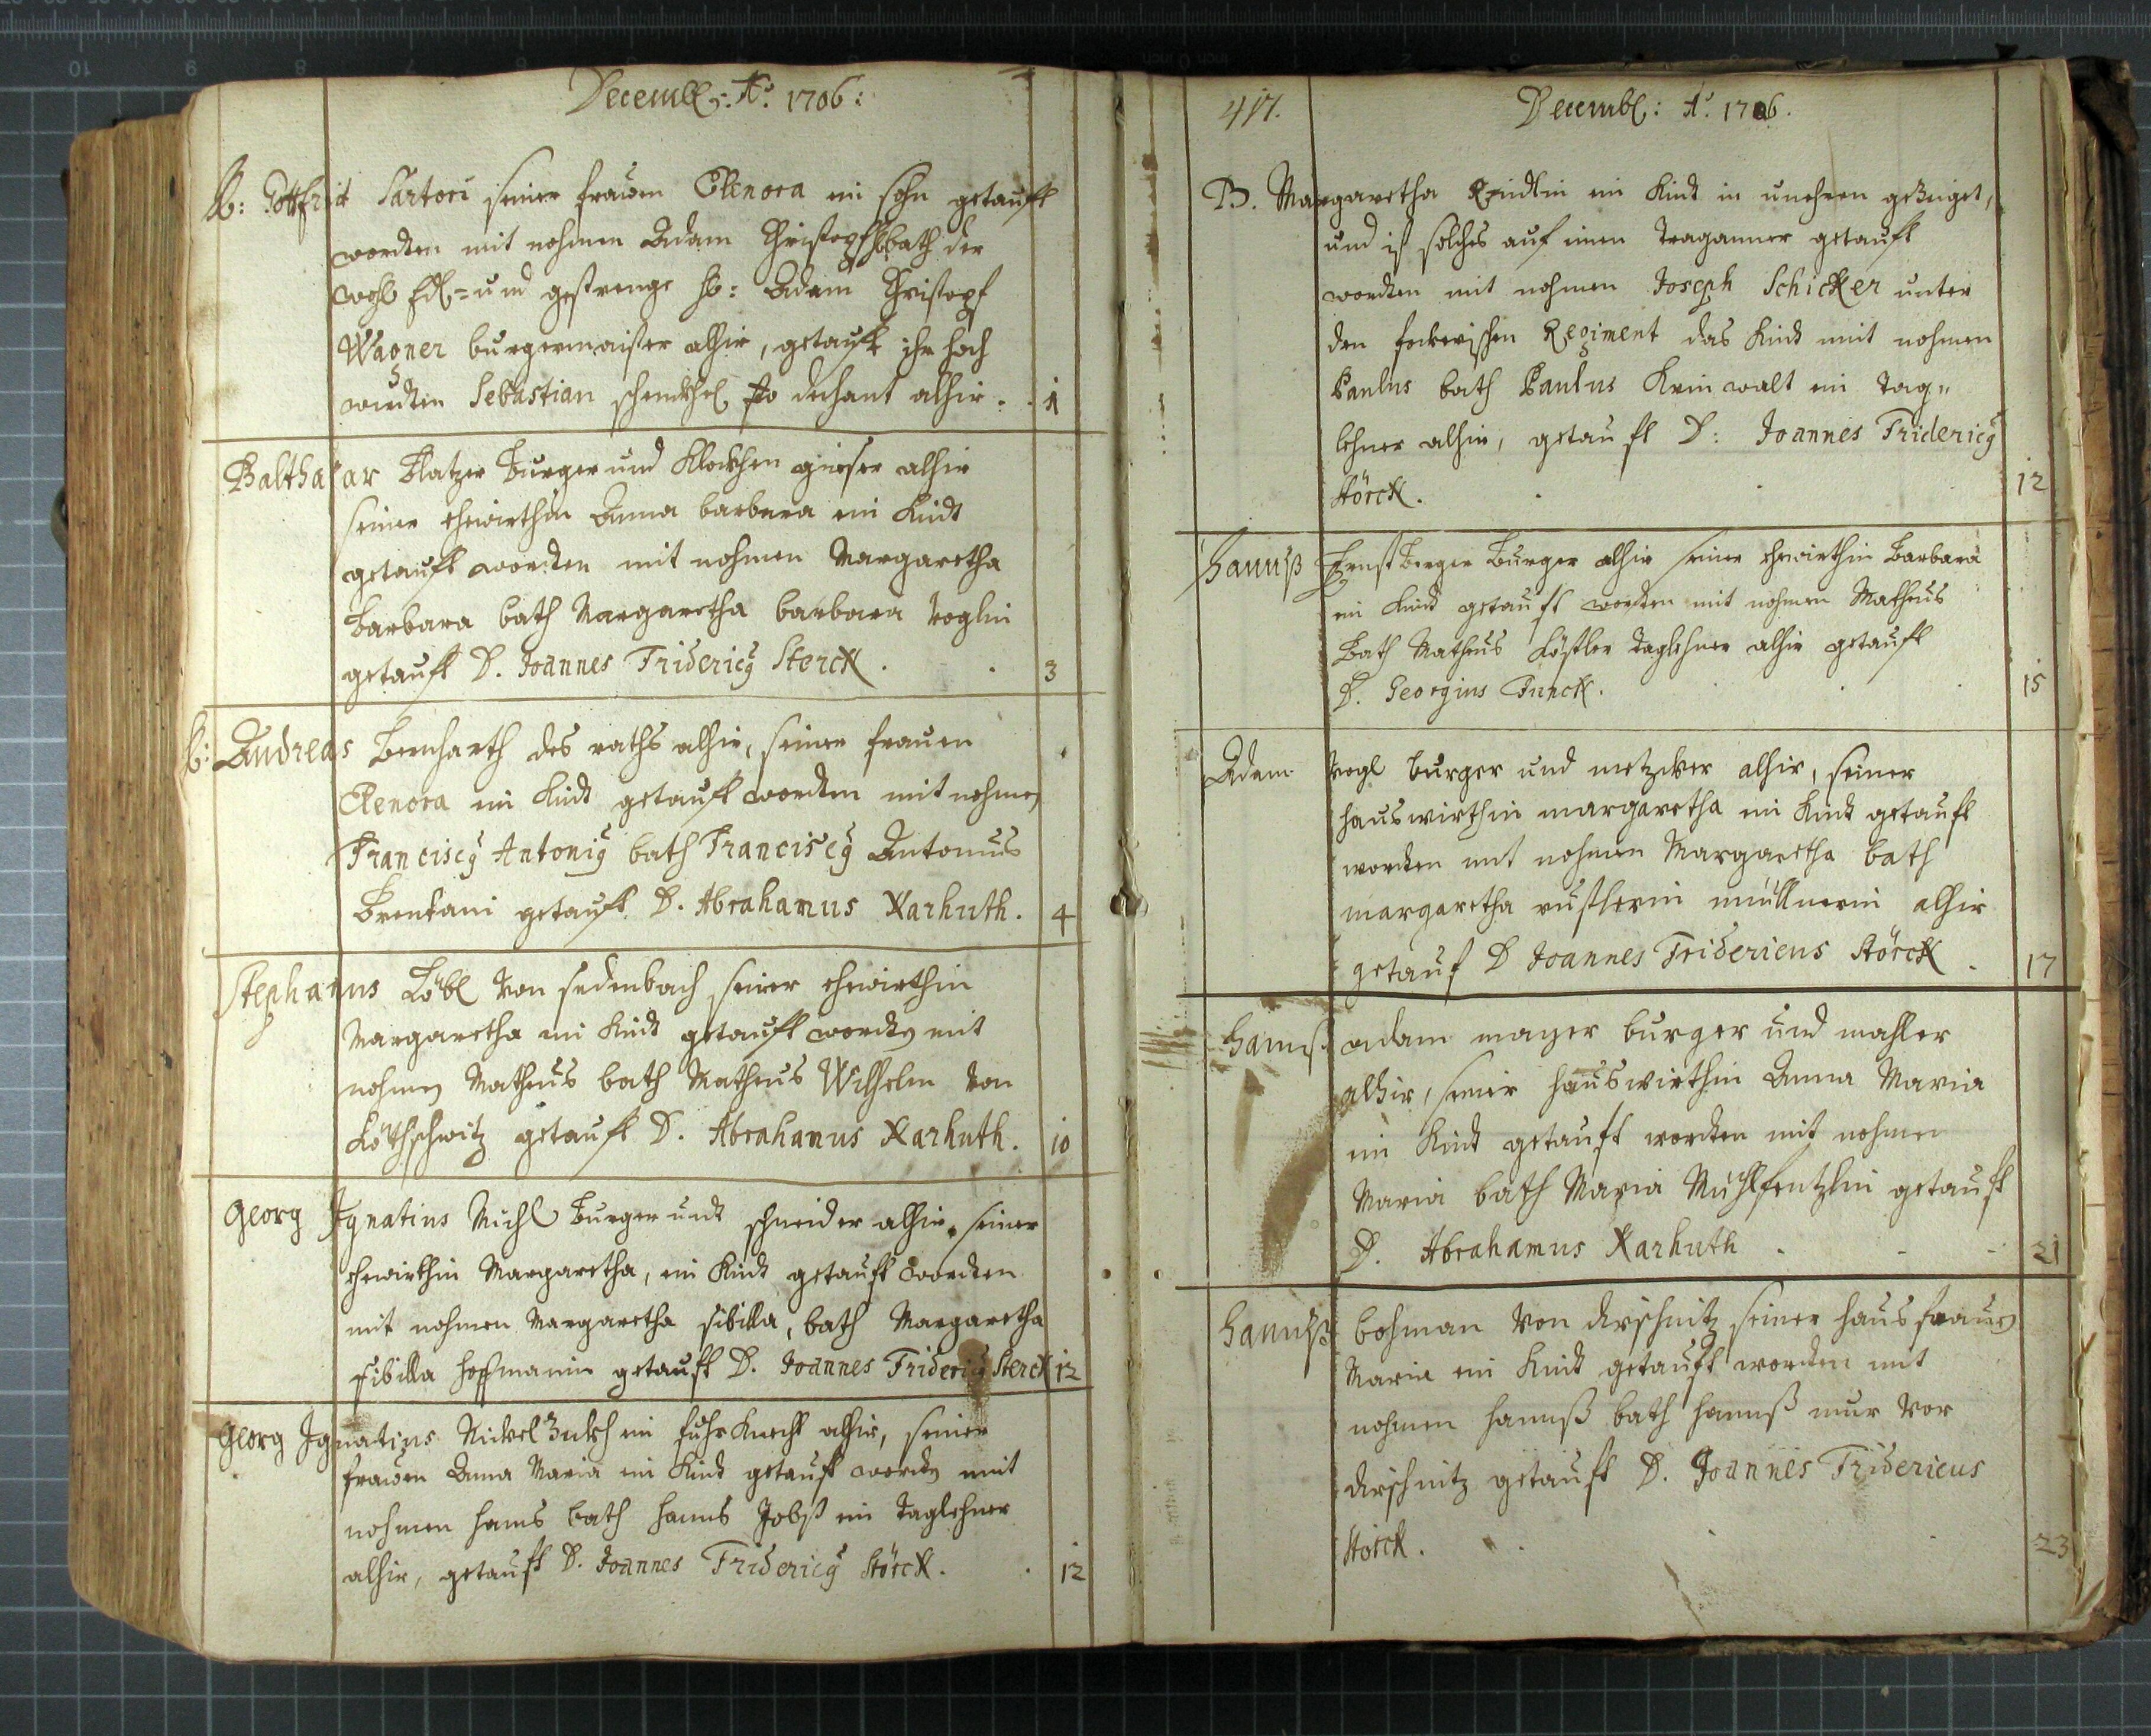 Decemb: Aō. 1706:
H: Gottfrid Sartori seiner frawen Elenora ein sohn getaufft
worden mit nohmen Adam Christopf bath der
wohl Edl- und gestrenge H: Adam Christopf
Wagner burgermaister alhir, getaufft ihr hoch
würden Sebastian dechant alhir. 1
Balthasar Platzer Burger und Klockhen gieser alhir
seiner ehewirthin Anna barbara ein Kindt
getaufft worden mit nohmen Margaretha
Barbara bath Margaretha barbara Voglin
getaufft D. Joannes Fridericy Storck. 3
H: Andreas Bernharth des raths alhir, seiner frauen
Elenora ein Kindt getaufft worden mit nohmen
Franciscy Antoniy bath Franciscy Antonius
Brentani getaufft D. Abrahamus Karhuth. 4
Stephanus Löbl Von sedenbach seiner ehewirthin
Margaretha ein Kindt getaufft worden mit
nohmen Matheus bath Matheus Wilhelm Von
getaufft D. Abrahamus Karhuth. 10
Georg Ignatius Michl Burger undt schneider alhir, seiner
ehewirthin Margaretha, ein Kindt getaufft worden
mit nohmen Margaretha sibilla, bath Margaretha
sibilla hoffmanin getaufft D. Joannes Fridericy Storck 12
Georg Ignatius Nickel ein fuhr Knecht alhir, seiner
frawen Anna Maria ein Kindt getaufft worden mit
nohmen hanns bath hanns Jobst ein Taglehner
alhir, getaufft D. Joannes Fridericy Störck. 12
417.
Decemb: Aō. 1706.
B. Margaretha ein Kindt in unehren gezeiget,
und ist solches auf einen Traganner getaufft
worden mit nohmen Joseph Schicker unter
den Regiment das Kindt mit nohmen
Paulus bath Paulus ein Tag-
lehner alhir, getaufft D: Joannes Fridericy
Störck. 12
Hannß Ernstberger Burger alhir seiner ehewirthin Barbara
ein Kindt getaufft worden mit nohmen Matheus
Bath Matheus Köstler Taglehner alhir getaufft
D. Georgius Punck. 15
Adam Vogl burger und metzcker alhir, seiner
hauswirthin margaretha ein Kindt getaufft
worden mit nohmen Margaretha bath
margaretha rustlerin müllnerin alhir
getauf D Joannes Fridericus Störck. 17
Hannß adam mayer burger und mahler
alhir, seiner hauswirthin Anna Maria
ein Kindt getaufft worden mit nohmen
Maria bath Maria getaufft
D. Abrahamus Karhuth. 21
Hannß bohman Von dirschnitz seiner hausfrauen
Maria ein Kindt getaufft worden mit
nohmen hannß bath hannß mur Von
dirschnitz getaufft D. Joannes Fridericus
Störck. 23